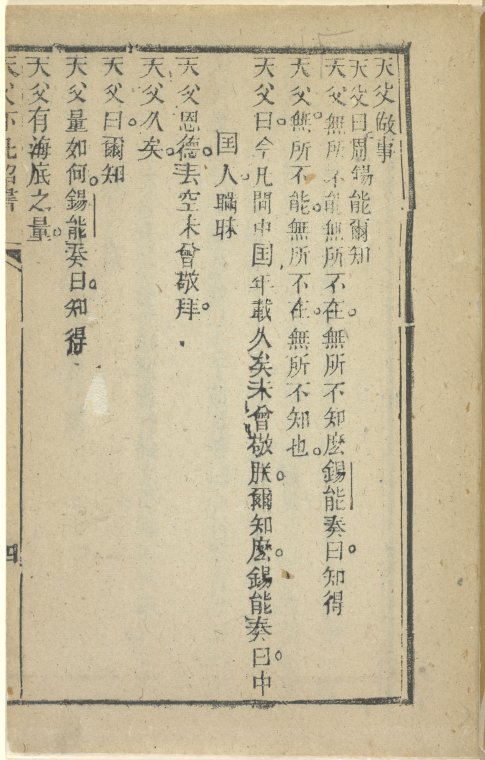 天父做事
天父曰周錫能爾知
天父無所不能無所不在無所不知麽錫能奏曰知得
天父無所不能無所不在無所不知也
天父曰今凡間中囯年載久矣未曾敬朕爾知麽錫能奏曰中
囯人瞞昧
天父恩德丟空未曾敬拜
天父久矣
天父曰爾知
天父量如何錫能奏曰知得
天父有海底之量
天父下凡詔書
四